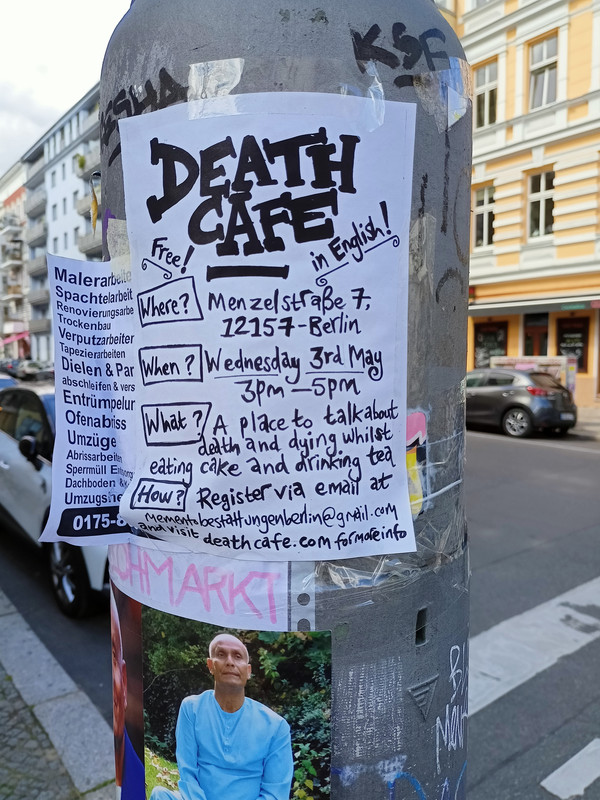 KSF
DEATH
CAFE
Free!
in English!
Where? Menzelstraße 7,
12157-Berlin
When? Wednesday 3rd May
3pm-5pm
What? A place to talk about
death and dying whilst
eating cake and drinking tea
How? Register via email at
mementobestattungenberlin@gmail.com
and visit deathcafe.com for more info
Malerarbeite
Spachtelarbeit
Renovierungsarbe
Trockenbau
Verputzarbeiter
Tapezierarbeiten
Dielen & Par
abschleifen & vers
Entrümpelur
Ofenabriss
Umzüge
Abrissarbeiten
Sperrmüll
Dachboden &
Umzugshe
0175-8
OHMARKT